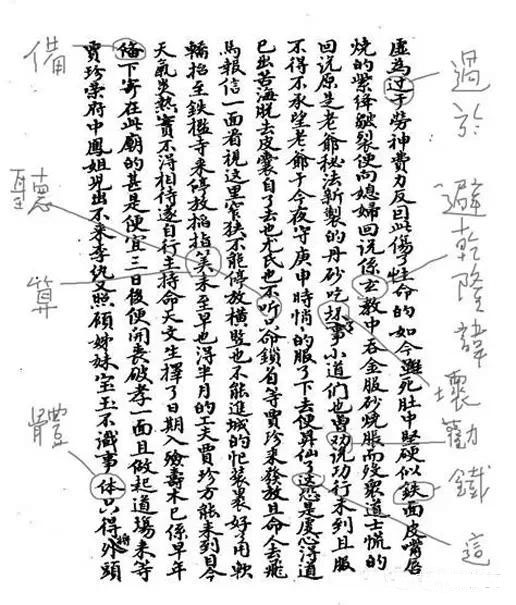 虛為过于勞神費力反因此傷了性命的如今雖死肚中堅硬似鉄面皮嘴唇
燒的紫絳皺裂便向媳婦回说係玄教中吞金服砂燒脹而歿衆道士慌的
回说原是老爺秘法新製的丹砂吃坏事小道们也曾劝说功行未到且服
不得不承望老爺于今夜守庚申時悄々的服了下去便昇仙了这恐是虔心得道
已出苦海脱去皮囊自了去也尤氏也不听只命鎖着等賈珍来發放且命人去飛
馬報信一面看視這里窄狭不能停放横豎也不能進城的忙装裹好了用軟
轎抬至鉄檻寺来停放掐指算来至早也得半月的工夫賈珍方能来到目今
天氣炎熱實不得相待遂自行主持命天文生擇了日期入殮壽木已係早年
俻下寄在此廟的甚是便宜三日後便開喪破孝一面且做起道塲来等
賈珍榮府中鳳姐兒出不来李纨又照顧姊妹宝玉不識事体只得將外頭
過於
避乾隆諱
壞
勸
鐵
這
備
聽
算
體